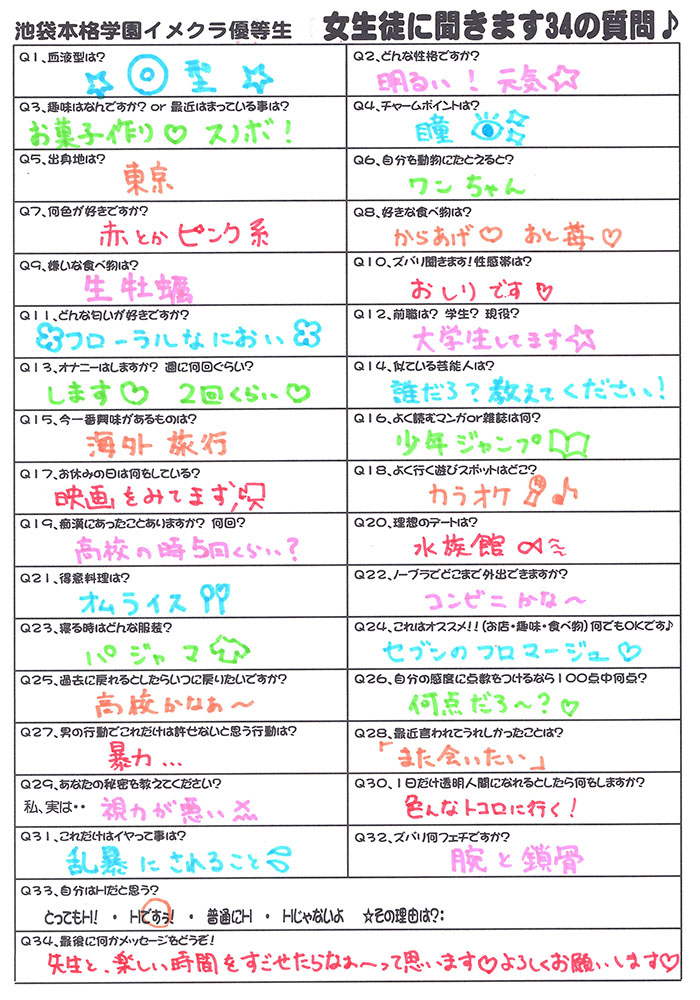 池袋本格学園イメクラ優等生 女生徒に聞きます34の質問♪
Q1、血液型は?
☆ O 型 ☆
Q2、どんな性格ですか?
明るい！元気☆
Q3、趣味はなんですか? or 最近はまっている事は?
お菓子作り♡ スノボ！
Q4、チャームポイントは?
瞳
Q5、出身地は?
東京
Q6、自分を動物にたとえると?
ワンちゃん
Q7、何色が好きですか?
赤とかピンク系
Q8、好きな食べ物は?
からあげ♡ あと苺♡
Q9、嫌いな食べ物は?
生牡蠣
Q10、ズバリ聞きます!性感帯は?
おしりです♡
Q11、どんな匂いが好きですか?
フローラルなにおい
Q12、前職は? 学生? 現役?
大学生してます☆
Q13、オナニーはしますか? 週に何回ぐらい?
します♡ 2回くらい♡
Q14、似ている芸能人は?
誰だろ？教えてください！
Q15、今一番興味があるものは?
海外旅行
Q16、よく読むマンガor雑誌は何?
少年ジャンプ
Q17、お休みの日は何をしている?
映画をみてます
Q18、よく行く遊びスポットはどこ?
カラオケ ♪
Q19、痴漢にあったことありますか? 何回?
高校の時5回くらい？
Q20、理想のデートは?
水族館
Q21、得意料理は?
オムライス
Q22、ノーブラでどこまで外出できますか?
コンビニかな〜
Q23、寝る時はどんな服装?
パジャマ
Q24、これはオススメ!!(お店・趣味・食べ物)何でもOKです♪
セブンのフロマージュ♡
Q25、過去に戻れるとしたらいつに戻りたいですか?
高校かなぁ〜
Q26、自分の感度に点数をつけるなら100点中何点?
何点だろ〜？♡
Q27、男の行動でこれだけは許せないと思う行動は?
暴力...
Q28、最近言われてうれしかったことは?
「また会いたい」
Q29、あなたの秘密を教えてください?
私、実は・・ 視力が悪い
Q30、1日だけ透明人間になれるとしたら何をしますか?
色んなトコロに行く！
Q31、これだけはイヤって事は?
乱暴にされること
Q32、ズバリ何フェチですか?
腕と鎖骨
Q33、自分はHだと思う?
とってもH! ・ Hですぅ! ・ 普通にH ・ Hじゃないよ ☆その理由は?:
Q34、最後に何かメッセージをどうぞ!
先生と、楽しい時間をすごせたらなぁ〜って思います♡よろしくお願いします♡